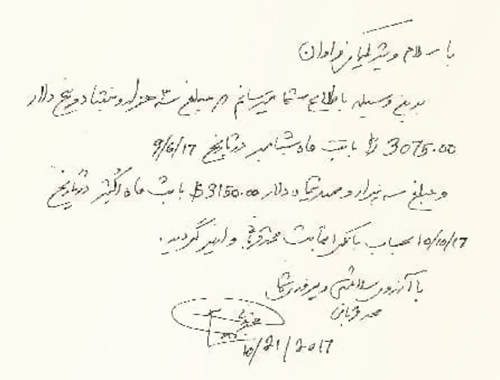 با سلام و تبریکات فراوان
بدین وسیله با اطلاع شما میرسانم مبلغ سه هزار و هفتاد و پنج دلار
3075.00 $ بابت ماه سپتامبر در تاریخ 9/6/17
و مبلغ سه هزار و صد و پنجاه دلار 3150.00 $ بابت ماه اکتبر در تاریخ
10/10/17 بحساب بانکی واریز گردید.
با آرزوی سلامتی و پیروزی شما
محمد قربانی
10/21/2017